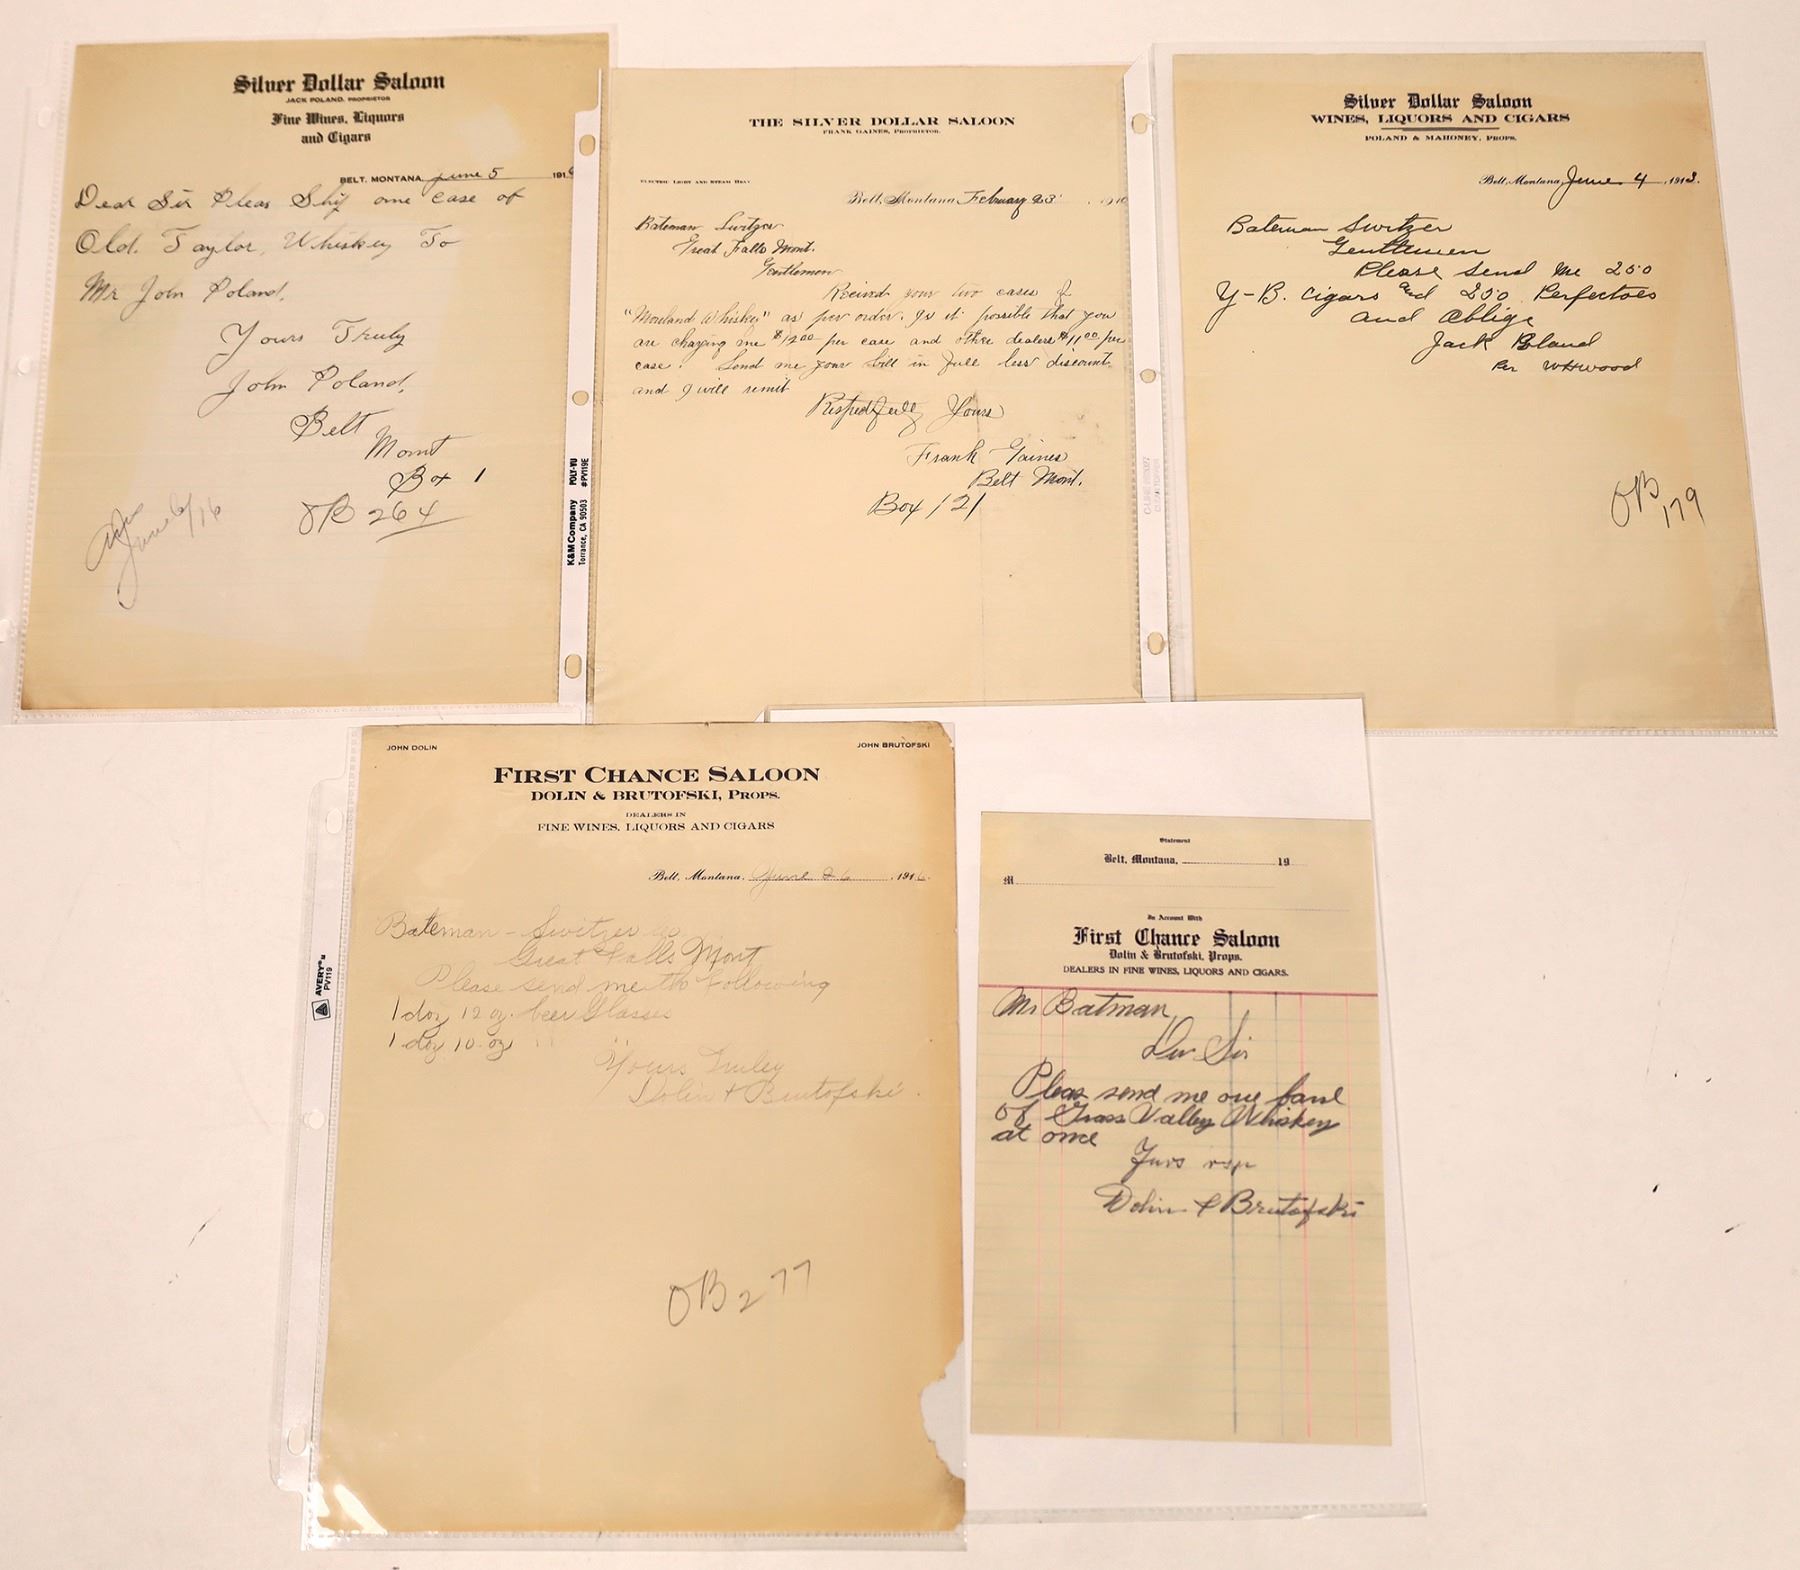 Silver Dollar Saloon
JACK POLAND, PROPRIETOR
Fine Wines, Liquors
and Cigars
BELT, MONTANA, June 5 1916
Dear Sir Pleas Ship one case of
Old. Taylor, Whiskey To
Mr John Poland.
Yours Truly
John Poland,
Belt
Mont
Box 1
OB 264
June 6/16
K&M Company POLY-VU
Torrance, CA 90503 #PV119E
THE SILVER DOLLAR SALOON
FRANK GAINES, PROPRIETOR.
ELECTRIC LIGHT AND STEAM HEAT
Belt, Montana February 23 1910
Bateman Switzer
Great Falls Mont.
Gentlemen
Recived your two cases of
"Moreland Whiskey" as per order. Is it possible that you
are charging me $12.00 per case and other dealers $11.00 per
case? Send me your bill in full less discount.
and I will remit
Respectfully Yours
Frank Gaines
Belt Mont.
Box 121
Silver Dollar Saloon
WINES, LIQUORS AND CIGARS
POLAND & MAHONEY, PROPS.
Belt, Montana June 4, 1913.
Bateman Switzer
Gentlemen
Please send me 250
Y-B. Cigars and 250 Perfectoes
and Oblige
Jack Poland
Per WHwood
OB 179
JOHN DOLIN
JOHN BRUTOFSKI
FIRST CHANCE SALOON
DOLIN & BRUTOFSKI, PROPS.
DEALERS IN
FINE WINES, LIQUORS AND CIGARS
Belt, Montana. June 26, 1916.
Bateman - Switzer Co
Great Falls Mont
Please send me the Following
1 doz 12 oz. beer Glasses
1 doz 10 oz " "
Yours Truley
Dolin & Brutofski.
OB 277
AVERY®
PV119
Statement
Belt, Montana, 19
M
In Account With
First Chance Saloon
Dolin & Brutofski, Props.
DEALERS IN FINE WINES, LIQUORS AND CIGARS.
Mr Batman
Der Sir
Pleas send me one barel
of Grass Valley Whiskey
at once
Yurs rsp
Dolin & Brutofski